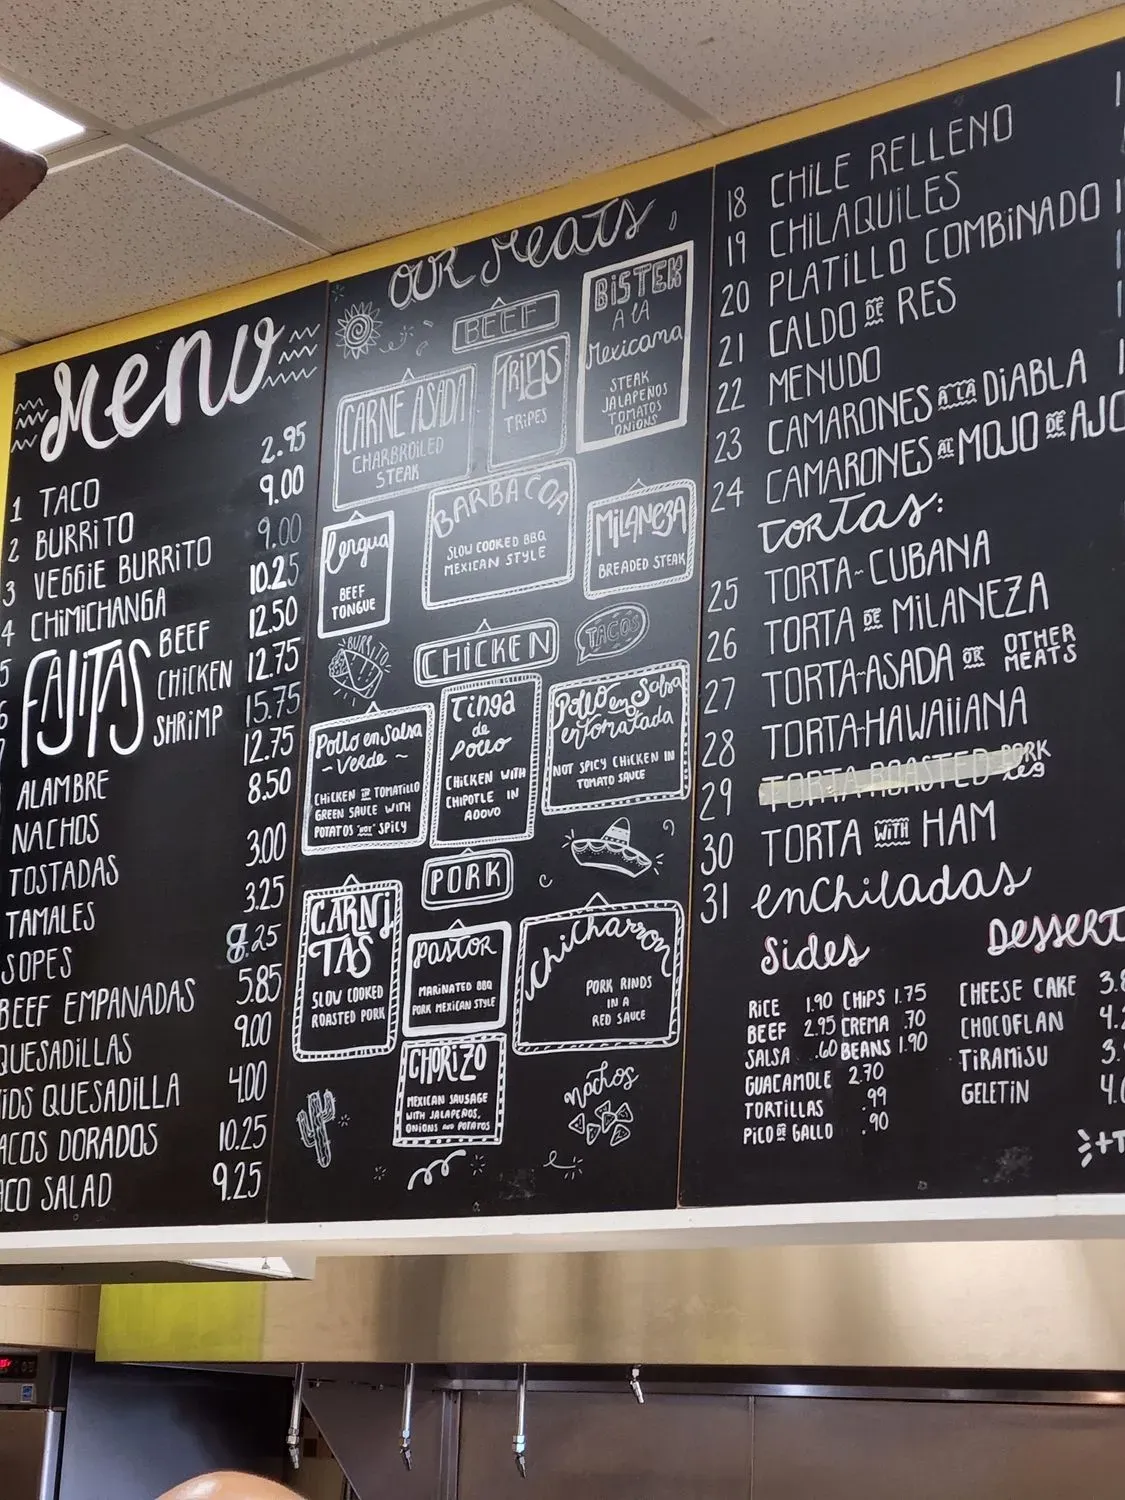 Menu
1 TACO 2.95
2 BURRITO 9.00
3 VEGGIE BURRITO 9.00
4 CHIMICHANGA 10.25
5 FAJITAS BEEF 12.50
6 CHICKEN 12.75
SHRIMP 15.75
ALAMBRE 12.75
NACHOS 8.50
TOSTADAS 3.00
TAMALES 3.25
SOPES .25
BEEF EMPANADAS 5.85
QUESADILLAS 9.00
KIDS QUESADILLA 4.00
TACOS DORADOS 10.25
TACO SALAD 9.25
OUR Meats
BEEF
BISTEK
A LA
Mexicana
STEAK
JALAPEÑOS
TOMATOS
ONIONS
CARNE ASADA
CHARBROILED
STEAK
TRIPAS
TRIPES
lengua
BEEF
TONGUE
BARBACOA
SLOW COOKED BBQ
MEXICAN STYLE
MILANEZA
BREADED STEAK
BURRITO
CHICKEN
TACOS
Pollo en Salsa
~ Verde ~
CHICKEN IN TOMATILLO
GREEN SAUCE WITH
POTATOS "NOT" SPICY
Tinga
de
Pollo
CHICKEN WITH
CHIPOTLE IN
ADOVO
Pollo en Salsa
entomatada
NOT SPICY CHICKEN IN
TOMATO SAUCE
PORK
CARNI
TAS
SLOW COOKED
ROASTED PORK
PASTOR
MARINATED BBQ
PORK MEXICAN STYLE
Chicharron
PORK RINDS
IN A
RED SAUCE
CHORIZO
MEXICAN SAUSAGE
WITH JALAPEÑOS,
ONIONS AND POTATOS
nachos
18 CHILE RELLENO
19 CHILAQUILES
20 PLATILLO COMBINADO
21 CALDO DE RES
22 MENUDO
23 CAMARONES A LA DIABLA
24 CAMARONES AL MOJO DE AJO
TORTAS:
25 TORTA-CUBANA
26 TORTA DE MILANEZA
27 TORTA-ASADA OR OTHER MEATS
28 TORTA-HAWAIIANA
29 TORTA ROASTED PORK leg
30 TORTA WITH HAM
31 enchiladas
Sides
RICE 1.90 CHIPS 1.75
BEEF 2.95 CREMA .70
SALSA .60 BEANS 1.90
GUACAMOLE 2.70
TORTILLAS .99
PICO DE GALLO .90
DESSERT
CHEESE CAKE
CHOCOFLAN
TIRAMISU
GELETIN